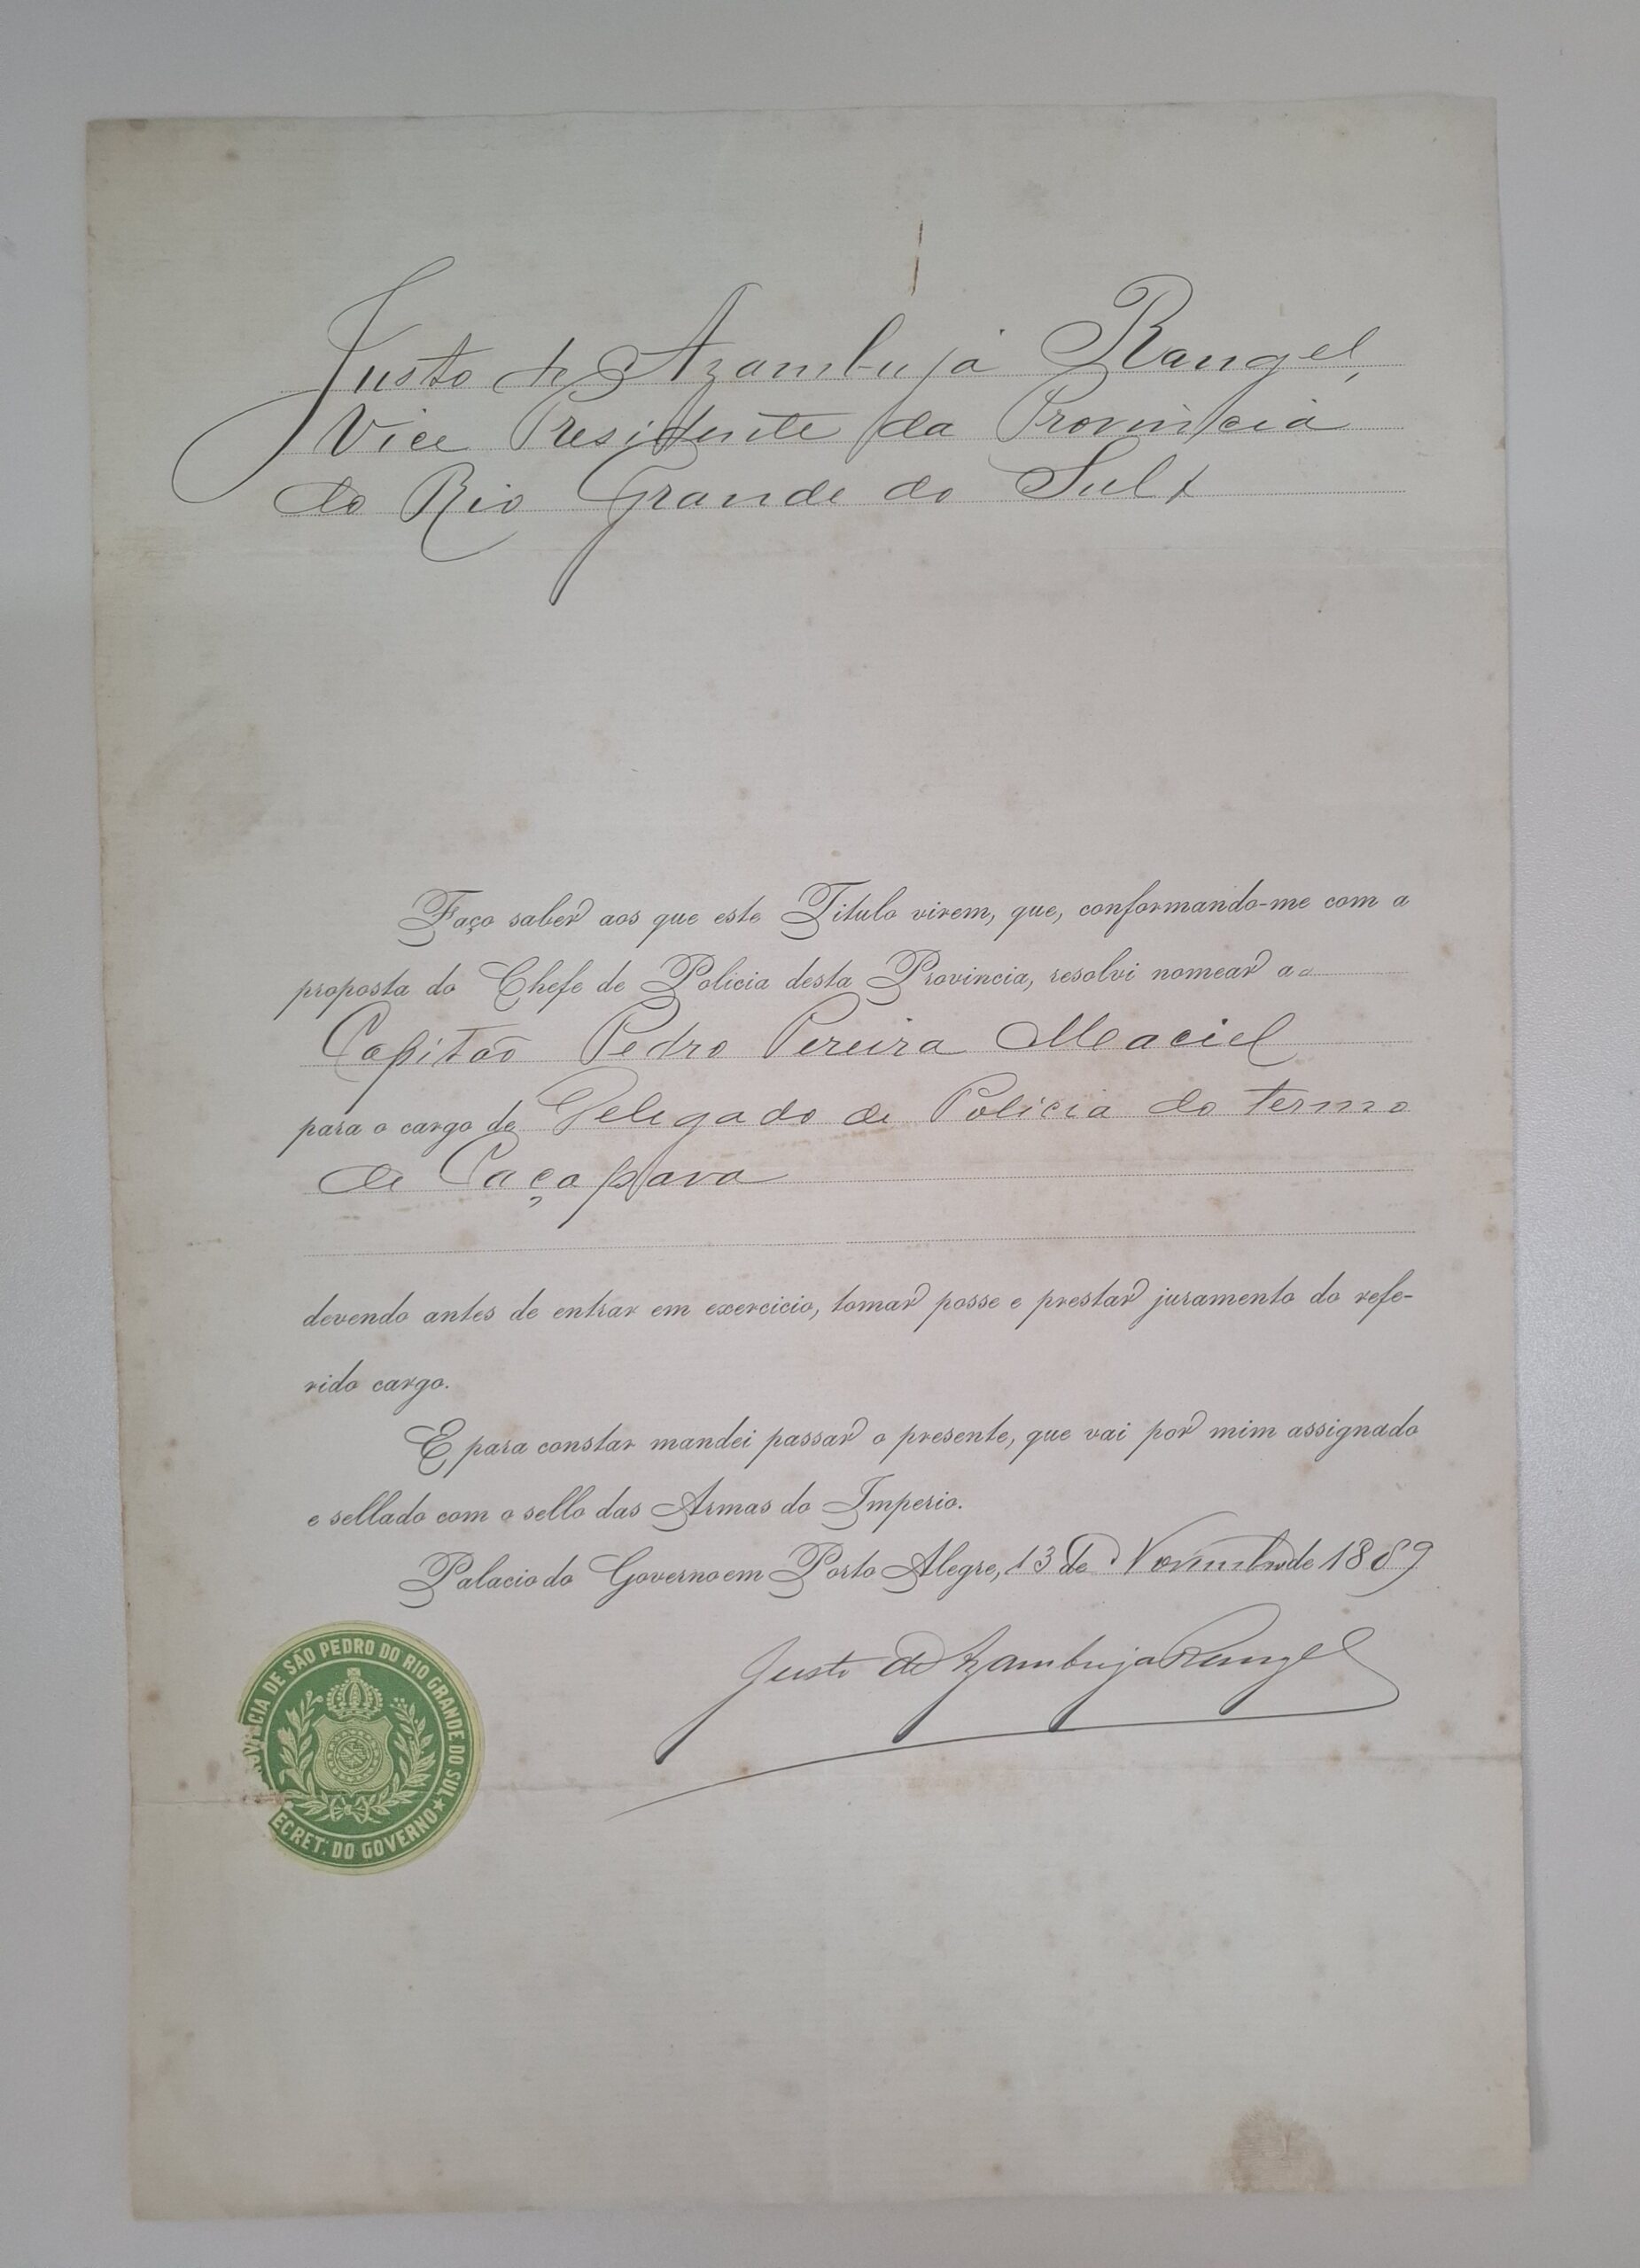 Justo de Azambuja Rangel,
Vice Presidente da Provincia
do Rio Grande do Sul
Faço saber aos que este Titulo virem, que, conformando-me com a
proposta do Chefe de Policia desta Provincia, resolvi nomear ao
Capitão Pedro Pereira Maciel
para o cargo de Delegado de Policia do termo
de Caçapava
devendo antes de entrar em exercicio, tomar posse e prestar juramento do refe-
rido cargo.
E para constar mandei passar o presente, que vai por mim assignado
e sellado com o sello das Armas do Imperio.
Palacio do Governo em Porto Alegre, 13 de Novembro de 1889
Justo de Azambuja Rangel
OVINCIA DE SÃO PEDRO DO RIO GRANDE DO SUL ★
ECRET. DO GOVERNO